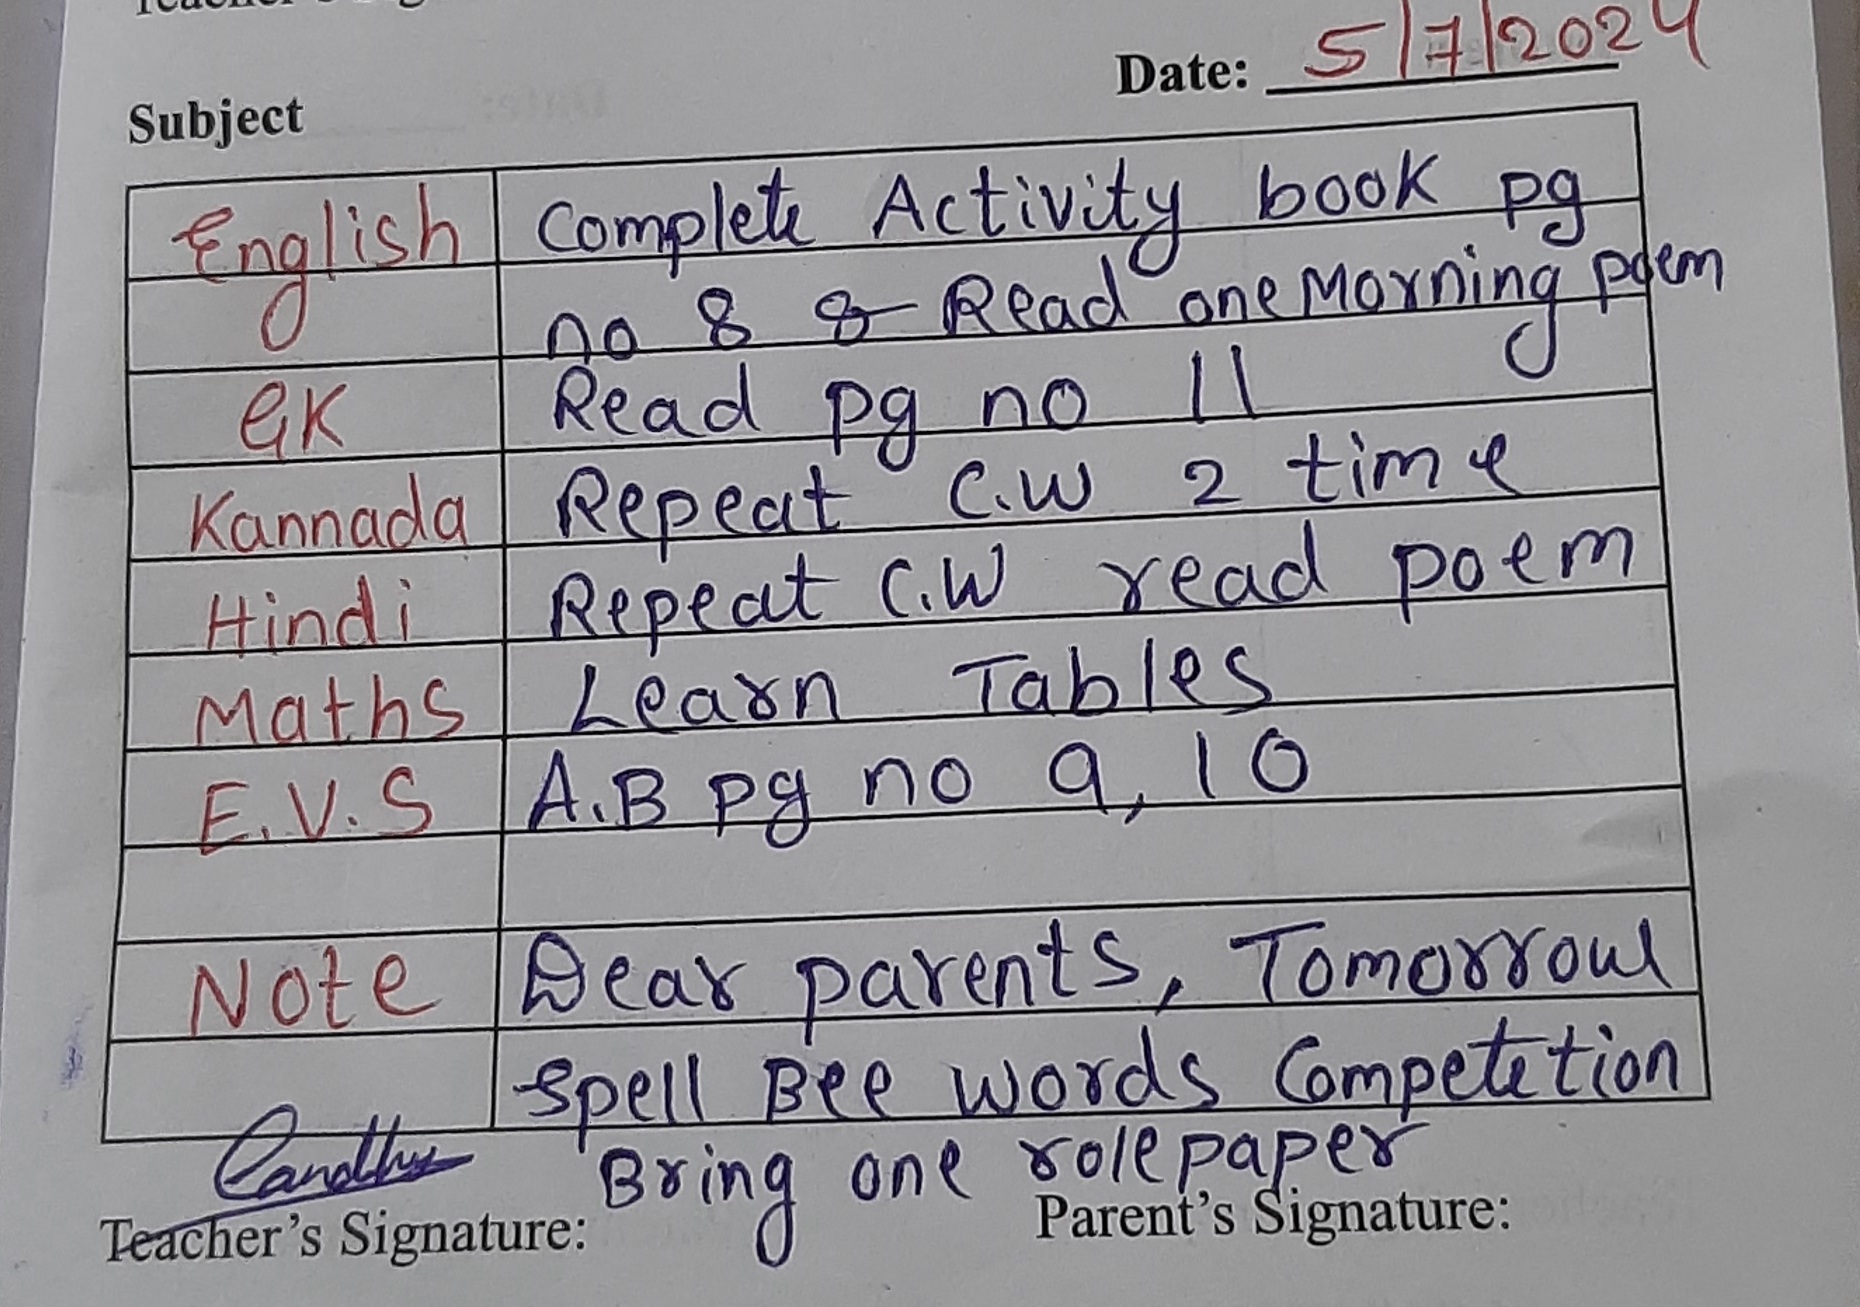 Date: 5/7/2024
Subject
English Complete Activity book pg
no 8 & Read one Morning poem
GK Read pg no 11
Kannada Repeat C.W 2 time
Hindi Repeat C.W read poem
Maths Learn Tables
E.V.S A.B pg no 9, 10
Note Dear parents, Tomorrow
Spell Bee words Competetion
Bring one role paper
Teacher's Signature: Parent's Signature: